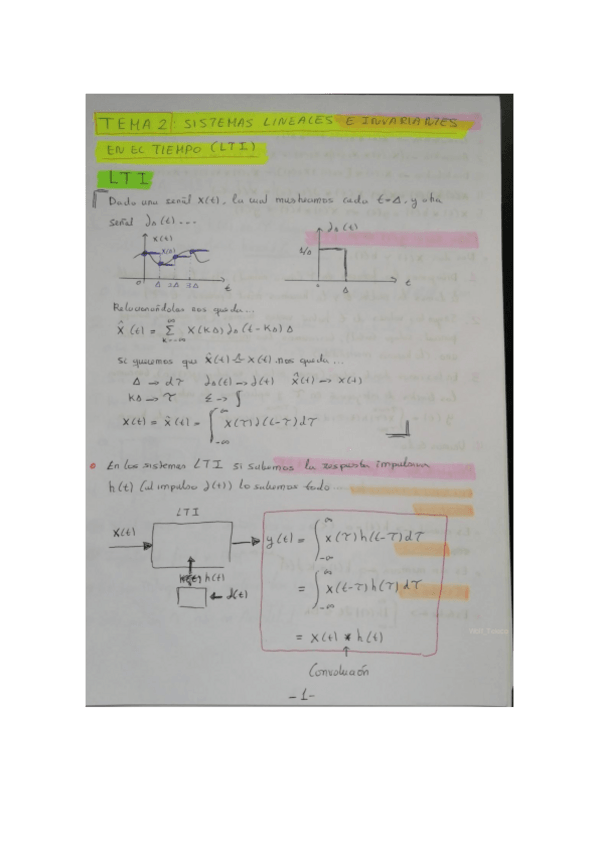 TEMA 2: SISTEMAS LINEALES E INVARIANTES
EN EL TIEMPO (LTI)
LTI
Dado una señal x(t), la cual muestreamos cada t=Δ, y otra
señal δΔ(t)...
x(t)
x(Δ)
0 Δ 2Δ 3Δ t
δΔ(t)
1/Δ
Δ t
Relacionándolas nos queda...
x̂(t) = Σ_{k=-∞}^{∞} x(kΔ) δΔ(t-kΔ) Δ
Si queremos que x̂(t) ≙ x(t), nos queda...
Δ → dτ δΔ(t) → δ(t) x̂(t) → x(t)
kΔ → τ Σ → ∫
x(t) = x̂(t) = ∫_{-∞}^{∞} x(τ) δ(t-τ) dτ
En los sistemas LTI si sabemos la respuesta impulsiva
h(t) (al impulso δ(t)) lo sabemos todo
LTI
x(t)
h(t)
δ(t)
y(t) = ∫_{-∞}^{∞} x(τ) h(t-τ) dτ
= ∫_{-∞}^{∞} x(t-τ) h(τ) dτ
= x(t) * h(t)
Convolución
-1-